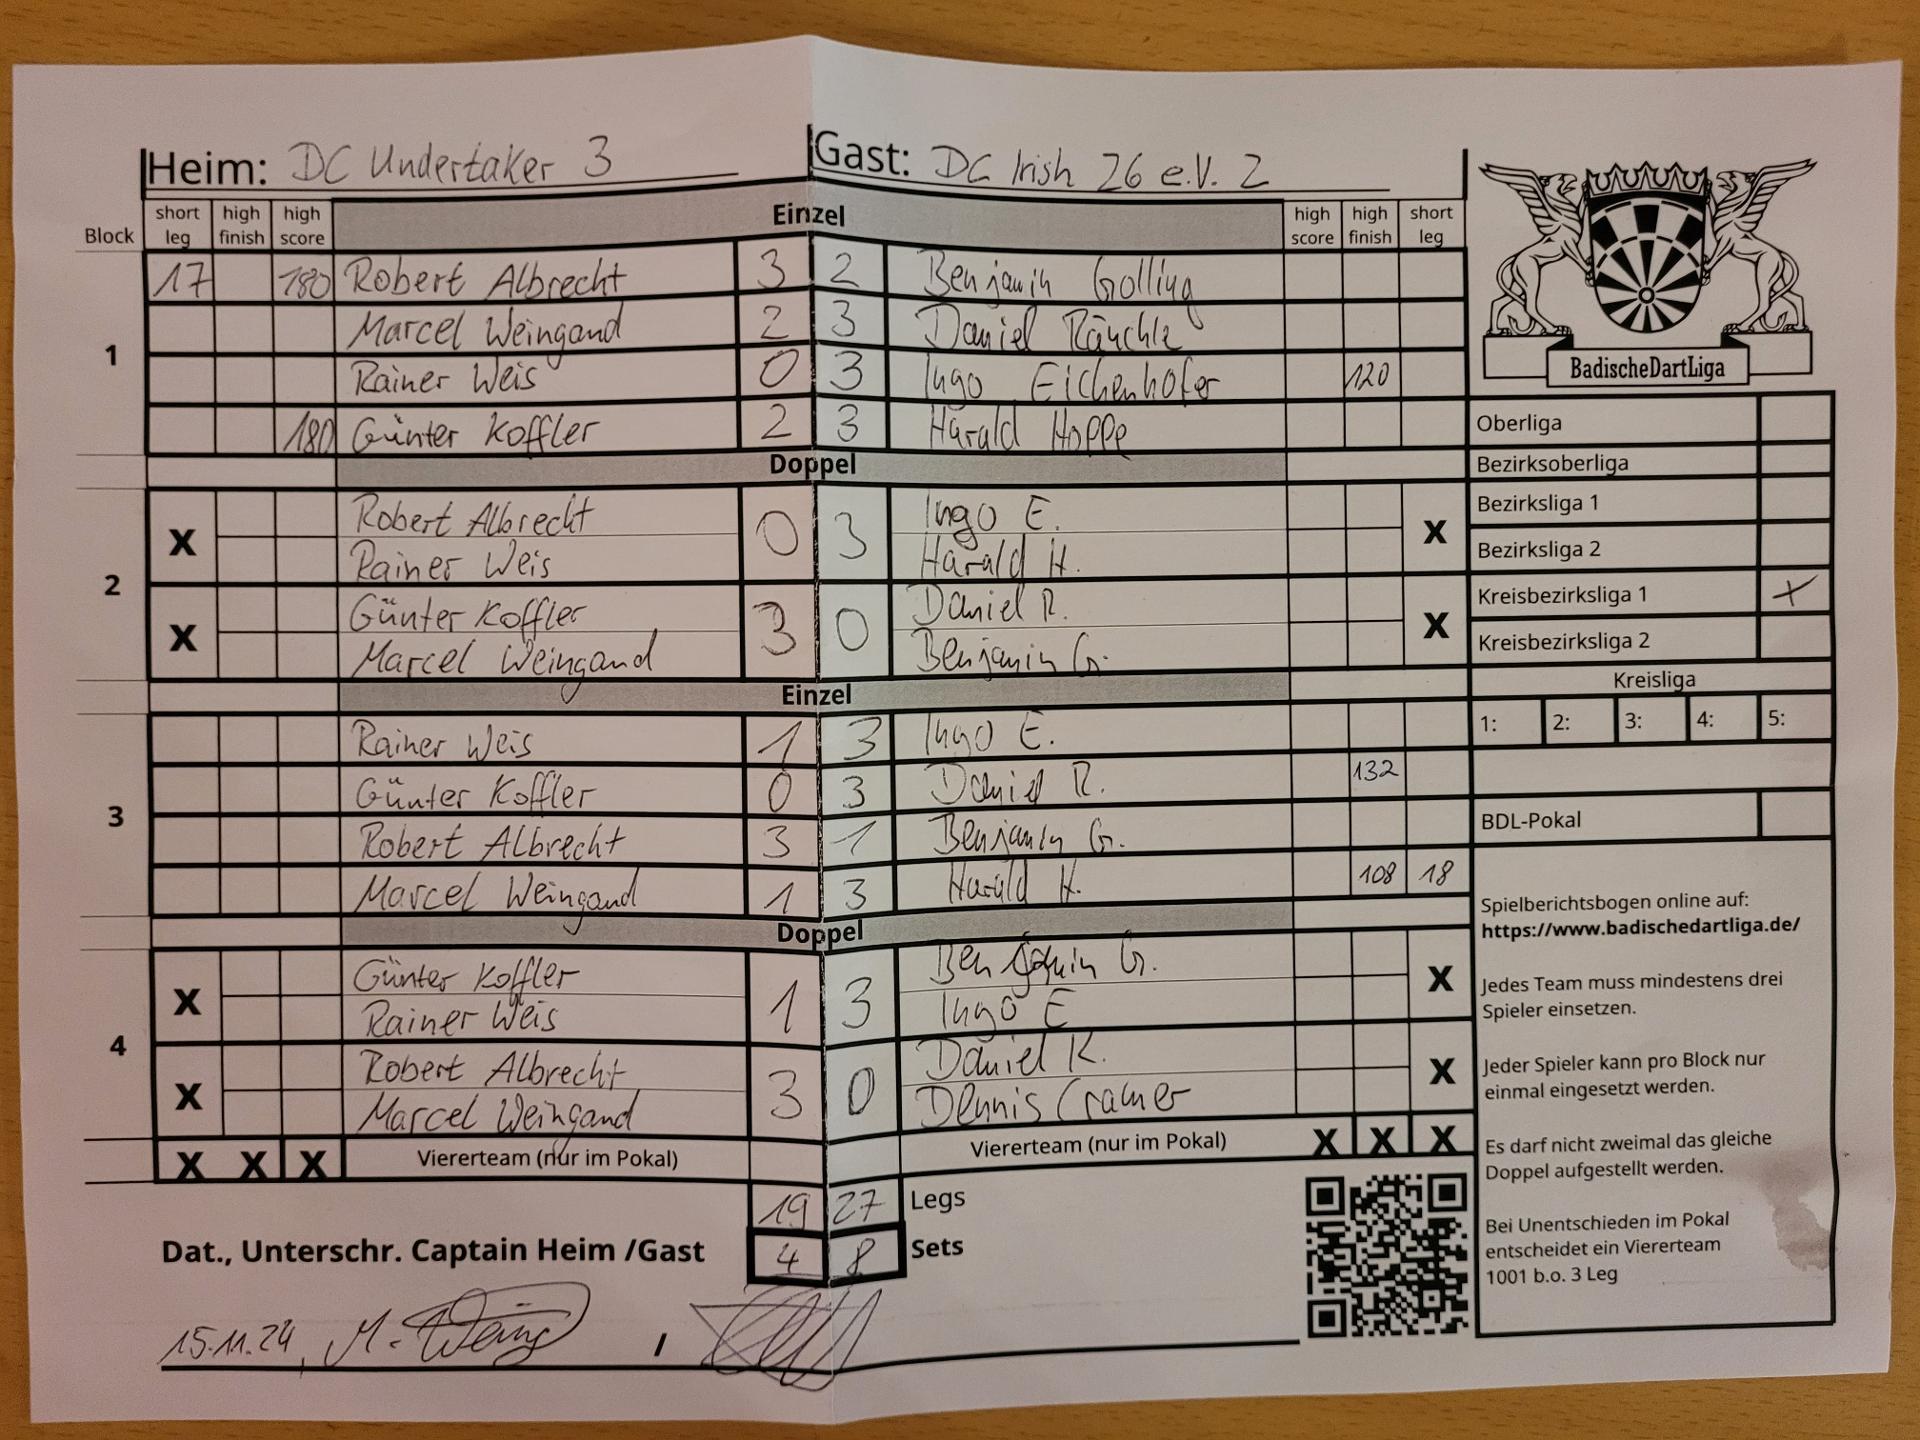 Heim: DC Undertaker 3 Gast: DC Irish 26 e.V. 2
Block short leg high finish high score Einzel high score high finish short leg
1
17 180 Robert Albrecht 3 2 Benjamin Golling
Marcel Weingand 2 3 Daniel Räuchle
Rainer Weis 0 3 Ingo Eichenhofer 120
180 Günter Koffler 2 3 Harald Hoppe
Doppel
2
X Robert Albrecht 0 3 Ingo E. X
Rainer Weis Harald H.
X Günter Koffler 3 0 Daniel R. X
Marcel Weingand Benjamin G.
Einzel
3
Rainer Weis 1 3 Ingo E.
Günter Koffler 0 3 Daniel R. 132
Robert Albrecht 3 1 Benjamin G.
Marcel Weingand 1 3 Harald H. 108 18
Doppel
4
X Günter Koffler 1 3 Benjamin G. X
Rainer Weis Ingo E
X Robert Albrecht 3 0 Daniel R. X
Marcel Weingand Dennis Cramer
X X X Viererteam (nur im Pokal) Viererteam (nur im Pokal) X X X
19 27 Legs
4 8 Sets
Dat., Unterschr. Captain Heim /Gast
15.11.24, M. /
BadischeDartLiga
Oberliga
Bezirksoberliga
Bezirksliga 1
Bezirksliga 2
Kreisbezirksliga 1 X
Kreisbezirksliga 2
Kreisliga
1: 2: 3: 4: 5:
BDL-Pokal
Spielberichtsbogen online auf:
https://www.badischedartliga.de/
Jedes Team muss mindestens drei
Spieler einsetzen.
Jeder Spieler kann pro Block nur
einmal eingesetzt werden.
Es darf nicht zweimal das gleiche
Doppel aufgestellt werden.
Bei Unentschieden im Pokal
entscheidet ein Viererteam
1001 b.o. 3 Leg